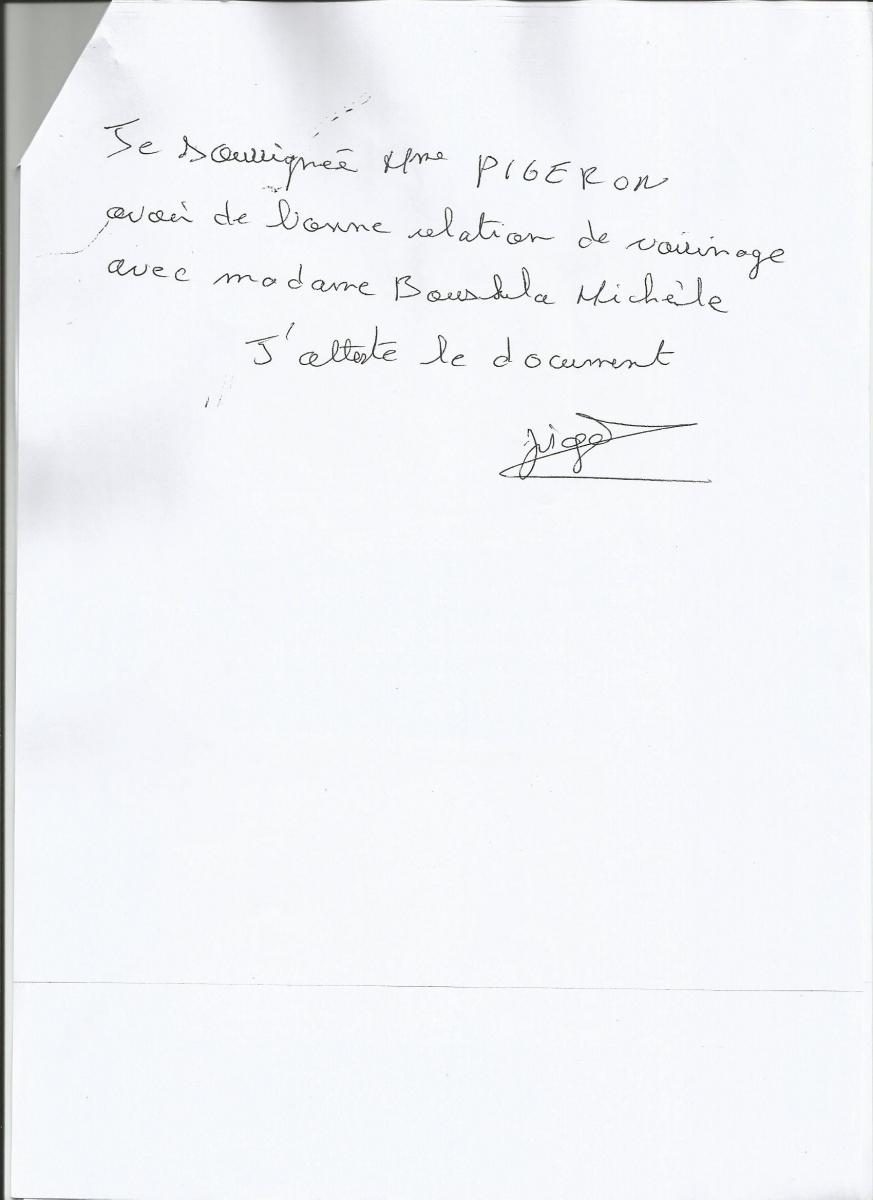 Je soussignée Mme PIGERON
avoir de bonne relation de voisinage
avec madame Michèle
J'atteste le document